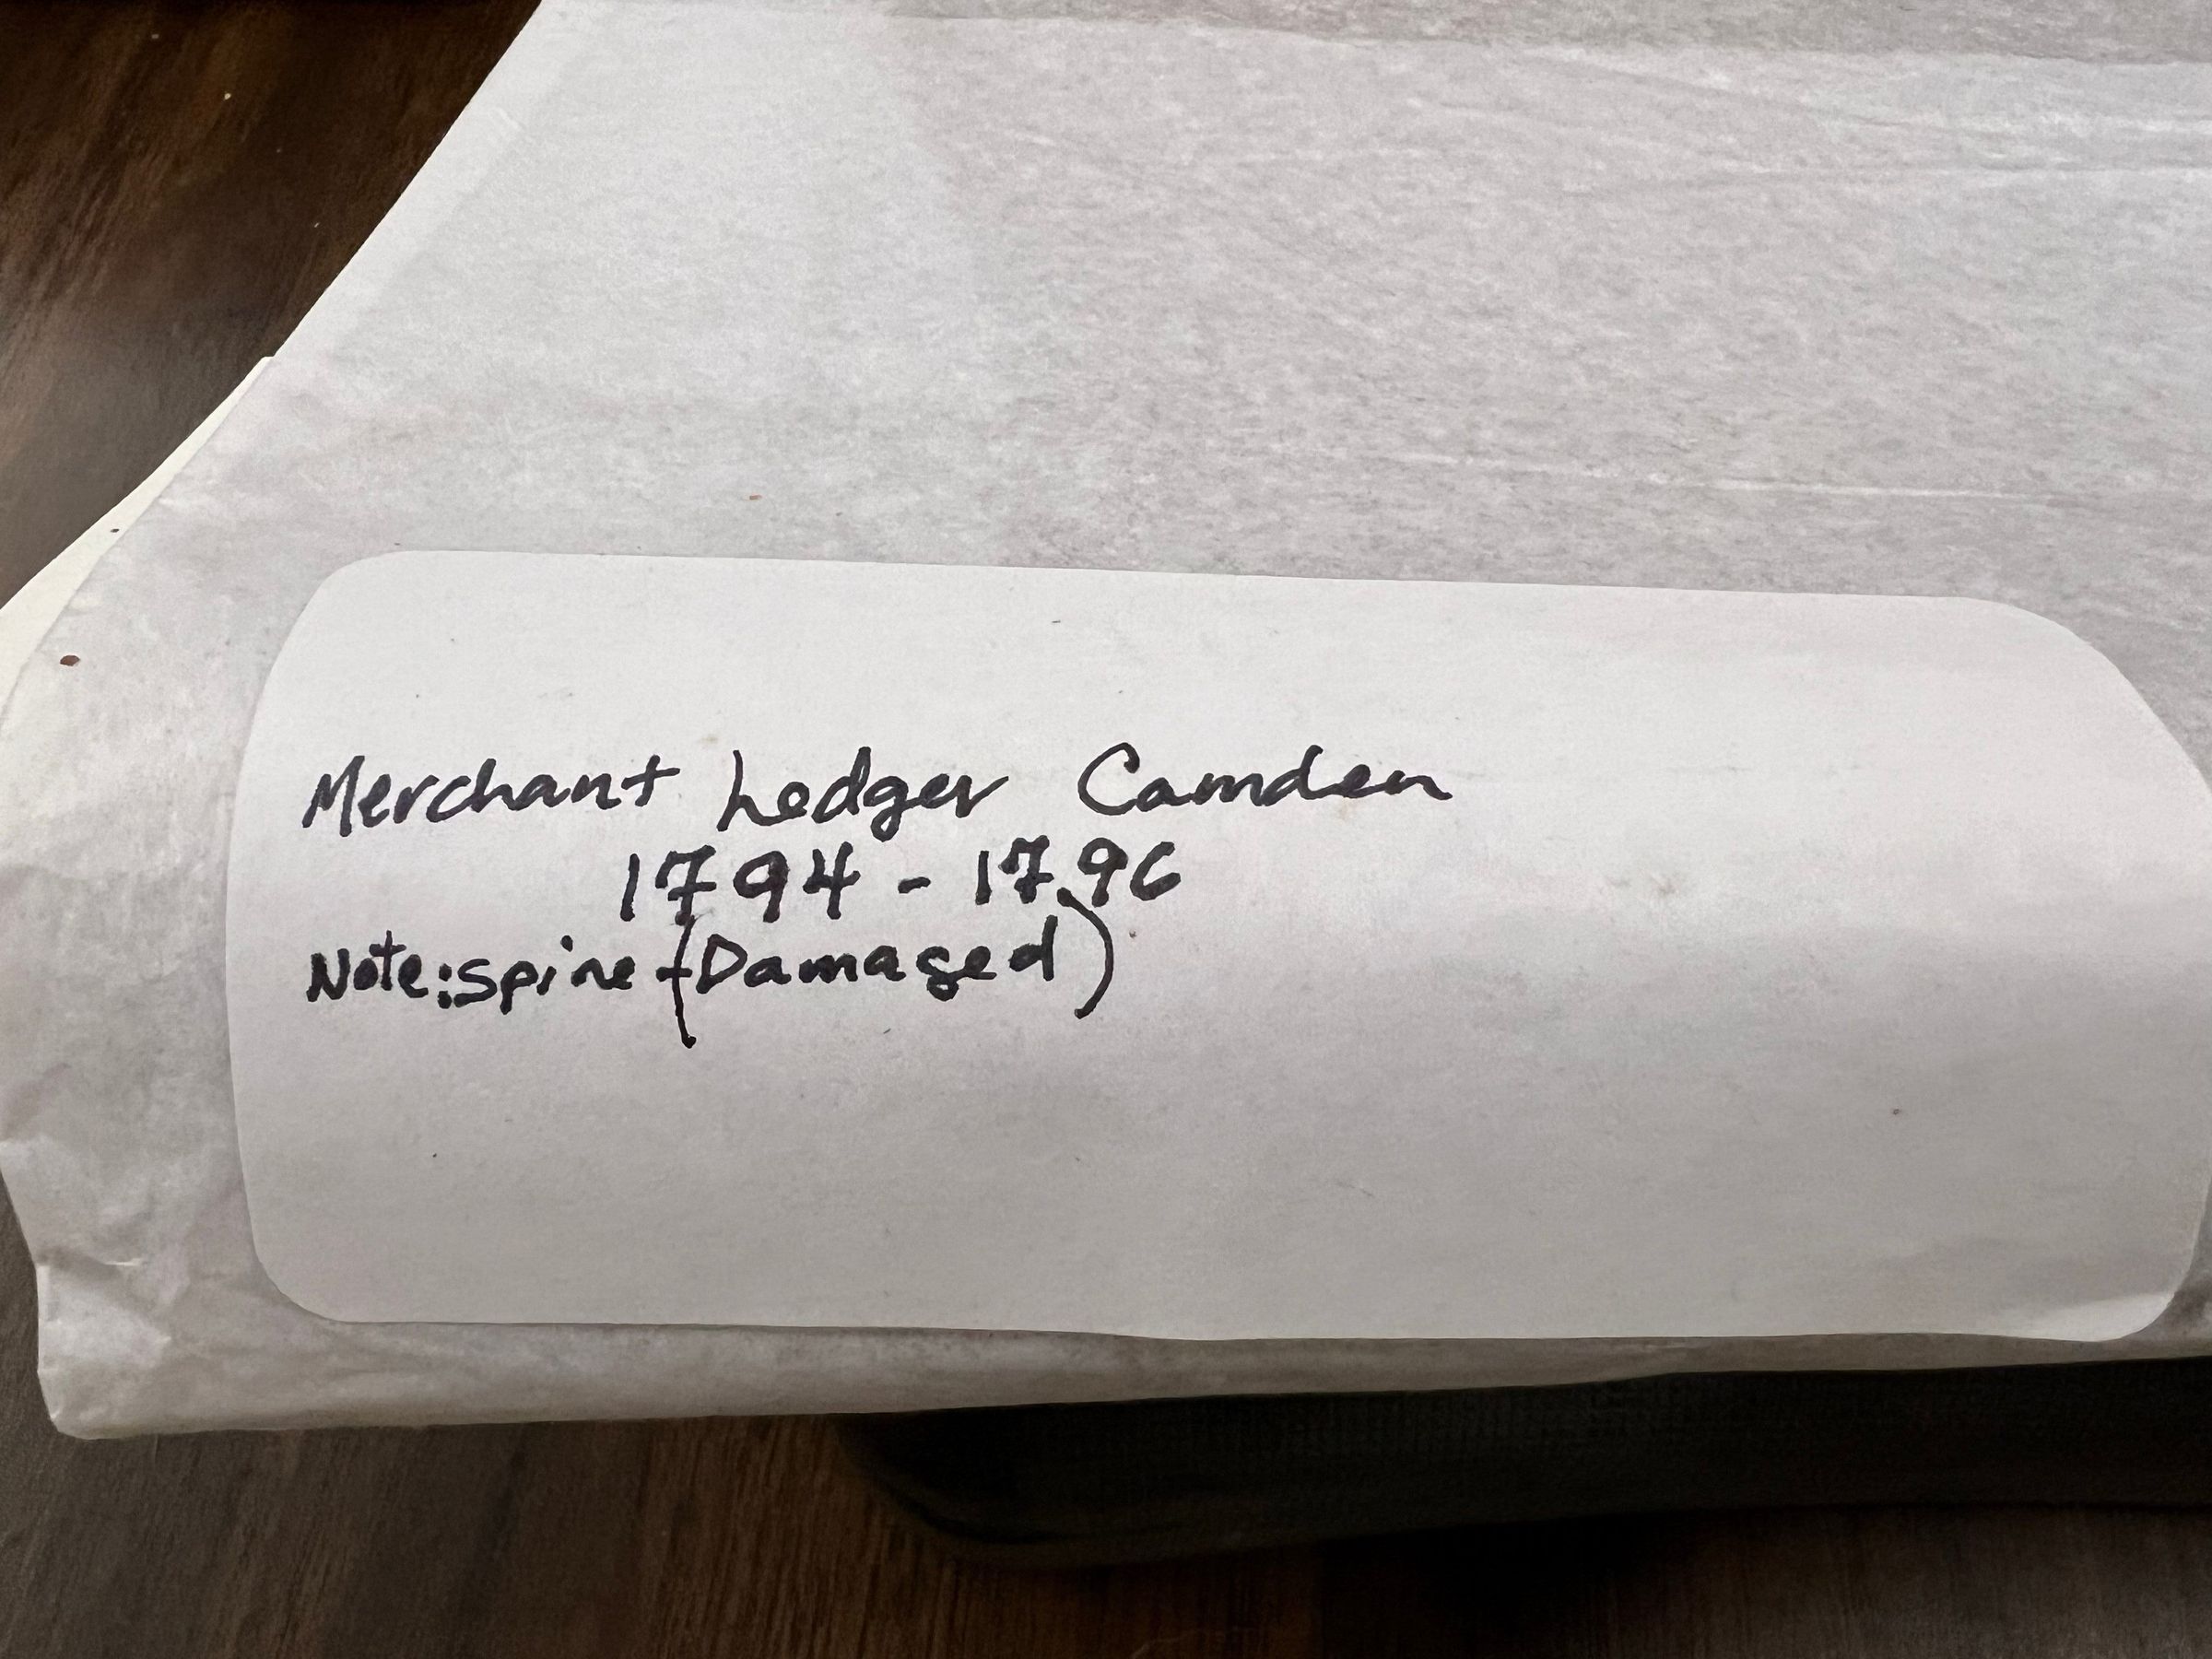 Merchant Ledger Camden
1794 - 1796
Note: spine (Damaged)